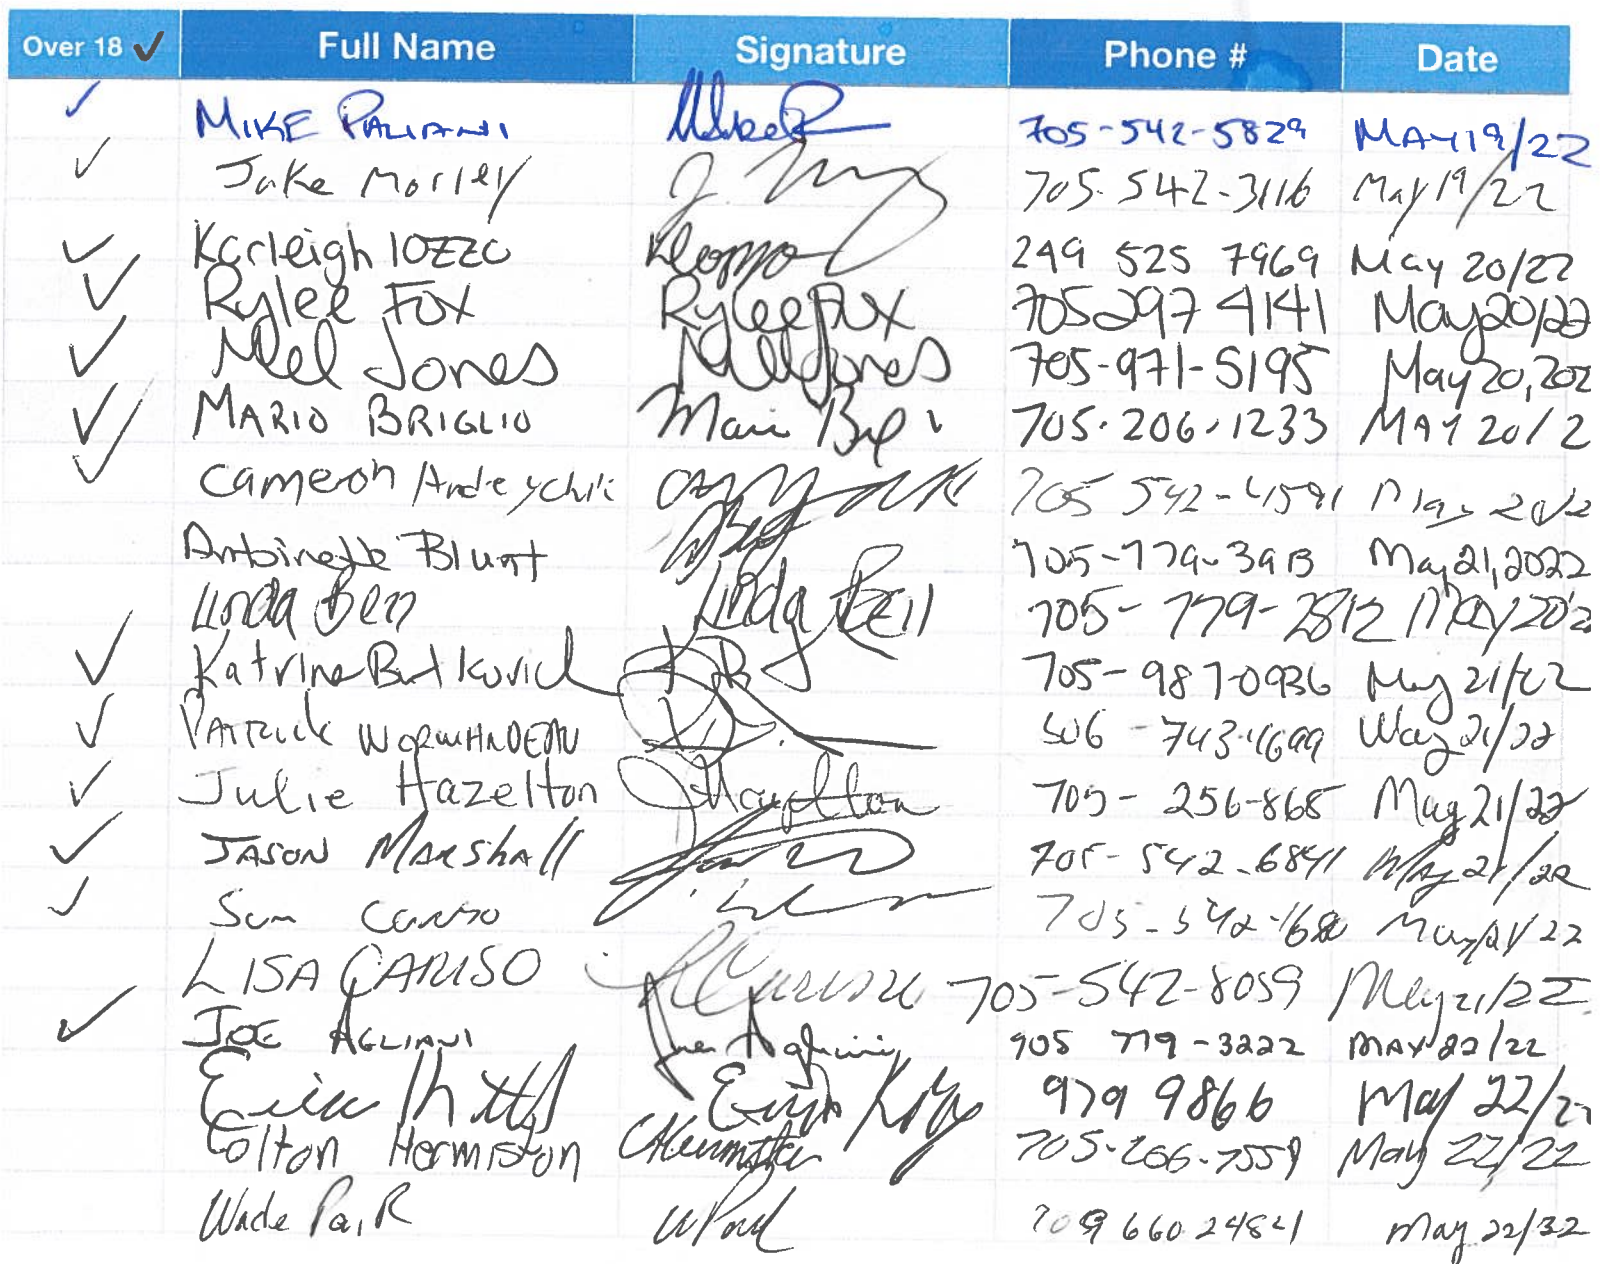 Over 18 ✓ Full Name Signature Phone # Date
✓ MIKE PALIANI 705-542-5829 MAY 19/22
✓ Jake Morley J. 705-542-3116 May 19/22
✓ Karleigh IOZZO 249 525 7969 May 20/22
✓ Rylee Fox Rylee Fox 705 297 4141 May 20/22
✓ Mel Jones Mel Jones 705-971-5195 May 20, 202
✓ MARIO BRIGLIO 705-206-1233 MAY 20/2
✓ Cameron 705 542-4591 May 20/2
Antoinette Blunt 705-779-3913 May 21, 2022
Linda Bell Linda Bell 705-779-2812 May 20
✓ Katrina Butkovich KB 705-987-0936 May 21/22
✓ PATRICK May 21/22
✓ Julie Hazelton JHazelton 705-256-865 May 21/22
✓ JASON MARSHALL 705-542-6841 May 21/22
✓ Sam Caruso 705-542- May 21/22
LISA CARUSO LCaruso 705-542-8059 May 21/22
✓ JOE AGLIANI 905 779-3222 MAY 22/22
979 9866 May 22/2
Colton Hermiston CHermiston 705-206-7559 May 22/22
Wade 709 660 2484 May 22/22